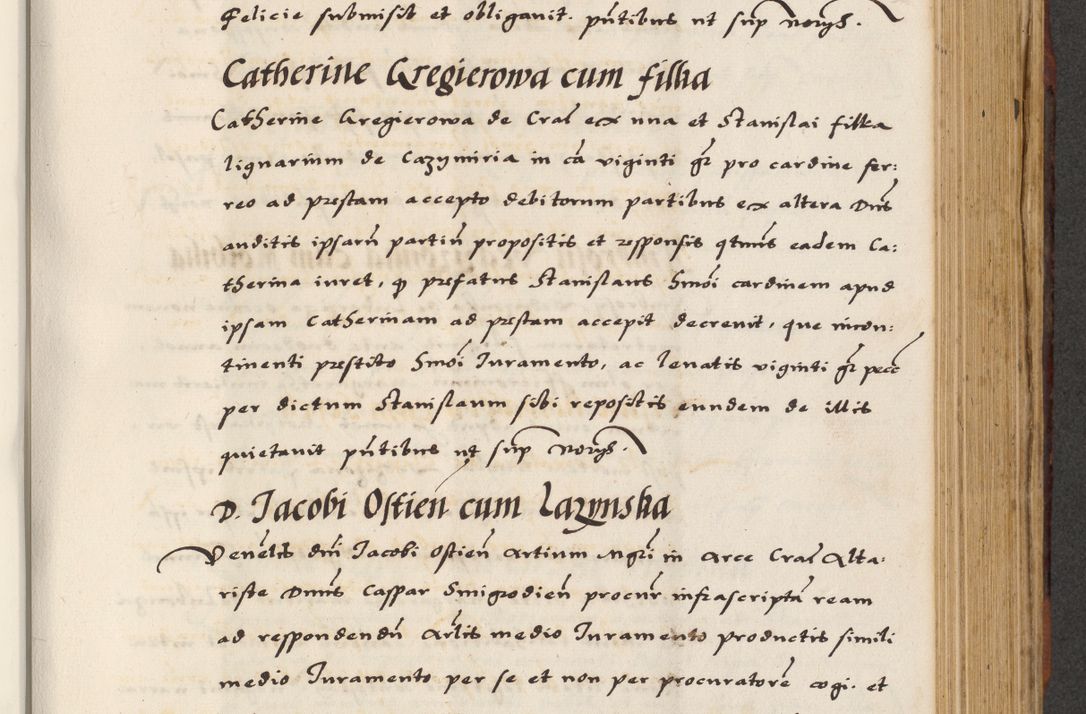 Felicie submisit et obligavit. pn̄tibus ut sup noryȝ.
Catherine Gregierowa cum filka
Catherine Gregierowa de Crac̄ ex una et Stanislai filka
lignarium de Cazymiria in cā viginti gr̄ pro cardine fer:
reo ad prestam accepto debitorum partibus ex altera Dn̄s
auditis ipsarn̄ partiū propositis et responsis qtenus eadem Ca:
therina iuret, ꝙ prefatus Stanislaus Smōi cardinem apud
ipsam Catherinam ad prestam accepit decrevit, que incon:
tinenti prestito Smōi Iuramento, ac levatis viginti gr̄ pecc̄
per dictum Stanislaum sibi repositis eundem de illis
quietavit pn̄tibus ut sup noryȝ.
D. Iacobi Ostien̄ cum Lazynska
Venēlis dn̄i Iacobi Ostien̄ Artium Mgr̄i in Arce Crac̄ Alta:
riste Dn̄us Caspar Smigrodien̄ procur̄ infrascriptā ream
ad respondendū Ar̄lis medio Iuramento productis simili
medio Iuramento per se et non per procuratorē cogi. et